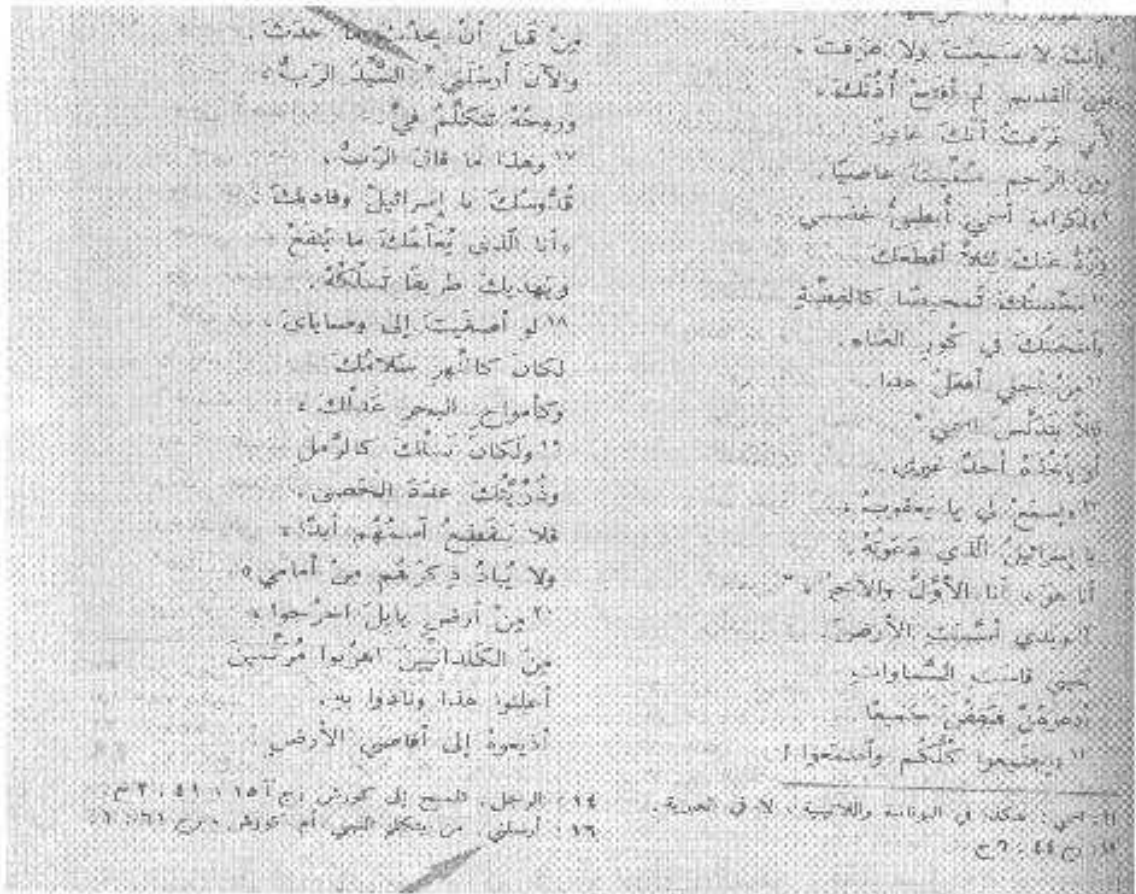 وأنتَ لا سَمِعتَ ولا عَرَفتَ ،
لم أفتَحْ أُذُنَكَ ،
لأنِّي عَرَفتُ أنَّكَ غادِرٌ
ومِنَ الرَّحِمِ سُمِّيتَ عاصيًا .
ولِكرامةِ اَسمي أُبطِئُ غضَبـي
عنكَ لئلاَّ أقطَعَكَ
تَمحيصًا كالفِضَّةِ
واَمتَحَنتُكَ في كُورِ العَناءِ .
١١ مِنْ أجلي أفعَلُ هذا
لئلاَّ يتَدَنَّسَ اَسمي *
أو يأخُذَهُ أحدٌ غيري .
لي يا يَعقوبُ ،
يا إِسرائيلُ الّذي دَعَوتُهُ .
أنا هوَ ، أنا الأوَّلُ والآخِرُ ، *
١٣ وبِيَدي أسَّستُ الأرضَ .
يميني قاسَتِ السَّماواتِ
جميعًا
كُلُّكُم واَسمَعوا !
١١ : اسمي : هكذا في اليونانية واللاتينية ، لا في العبرية .
٤٤ : ٦ ح
مِنْ قَبلِ أنْ يحدُثَ ما حدَثَ ،
والآنَ أرسَلَني * السَّيِّدُ الرّبُّ ،
ورُوحُهُ تتَكلَّمُ فيَّ
١٧ وهذا ما قالَ الرّبُّ ،
قُدُّوسُكَ يا إِسرائيلُ وفاديكَ :
«أنا الّذي يُعَلِّمُكَ ما يَنفَعُ
ويَهديكَ طريقًا تسلُكُهُ .
١٨ لو أصغَيتَ إلى وصايايَ ،
لكانَ كالنَّهرِ سَلامُكَ
وكأمواجِ البحرِ عَدلُكَ ،
١٩ ولَكانَ نَسلُكَ كالرَّملِ
وذُرِّيَّتُكَ عدَدَ الحَصى ،
فلا يَنقَطِـعُ اَسمُهُم أبدًا ،
ولا يُبادُ ذِكرُهُم مِنْ أمامي» .
٢٠ مِنْ أرضِ بابِلَ اخرُجوا ،
مِنَ الكَلدانيِّينَ اهرُبوا مُرَنِّمينَ
أعلِنوا هذا ونادوا بهِ ،
أذيعوهُ إلى أقاصي الأرضِ :
١٤ : الرجل . تلميح إلى كورش
١٦ : أرسلني . من يتكلم النبي أم كورش .